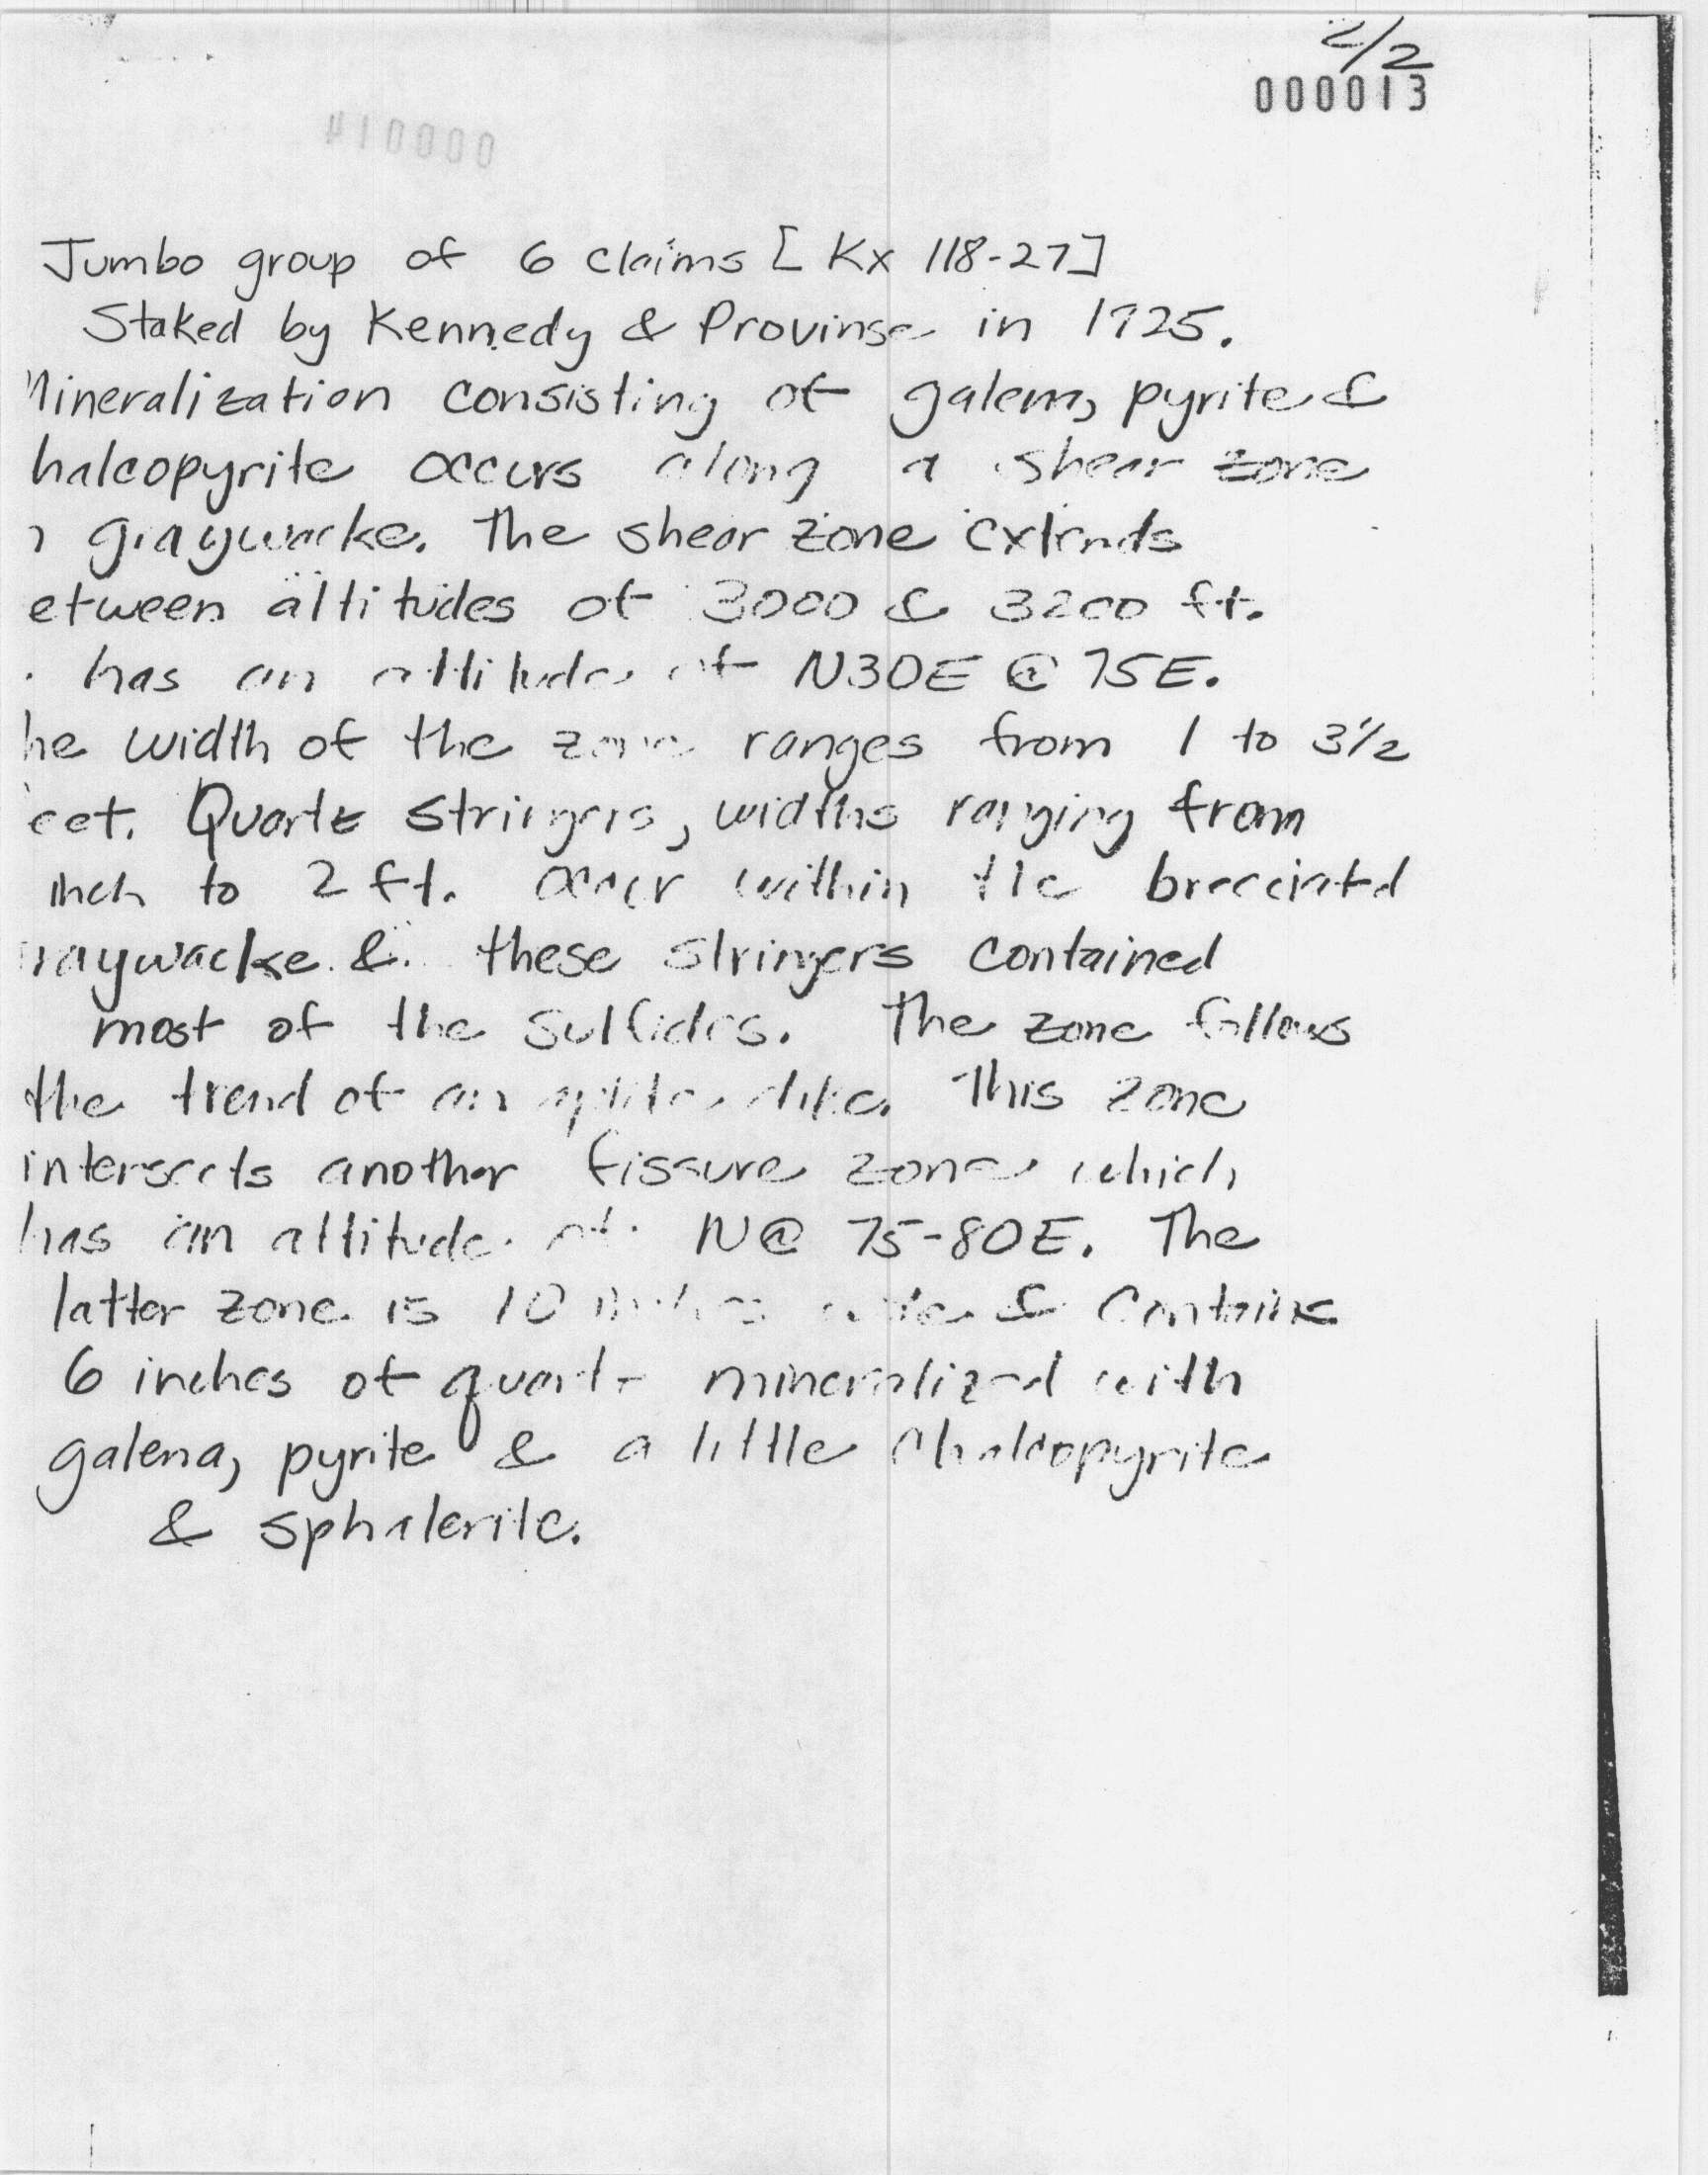 2/2
000013
000014
Jumbo group of 6 claims [Kx 118-27]
Staked by Kennedy & Provinse in 1925.
Mineralization consisting of galena, pyrite &
halcopyrite occurs along a shear zone
n graywacke. The shear zone extends
etween altitudes of 3000 & 3200 ft.
has an attitude of N30E @ 75E.
he width of the zone ranges from 1 to 3 1/2
eet. Quartz stringers, widths ranging from
inch to 2 ft. occur within the brecciated
raywacke & these stringers contained
most of the sulfides. The zone follows
the trend of an aplite dike. This zone
intersects another fissure zone which
has an attitude of N @ 75-80E. The
latter zone is 10 inches wide & contains
6 inches of quartz mineralized with
galena, pyrite & a little chalcopyrite
& sphalerite.